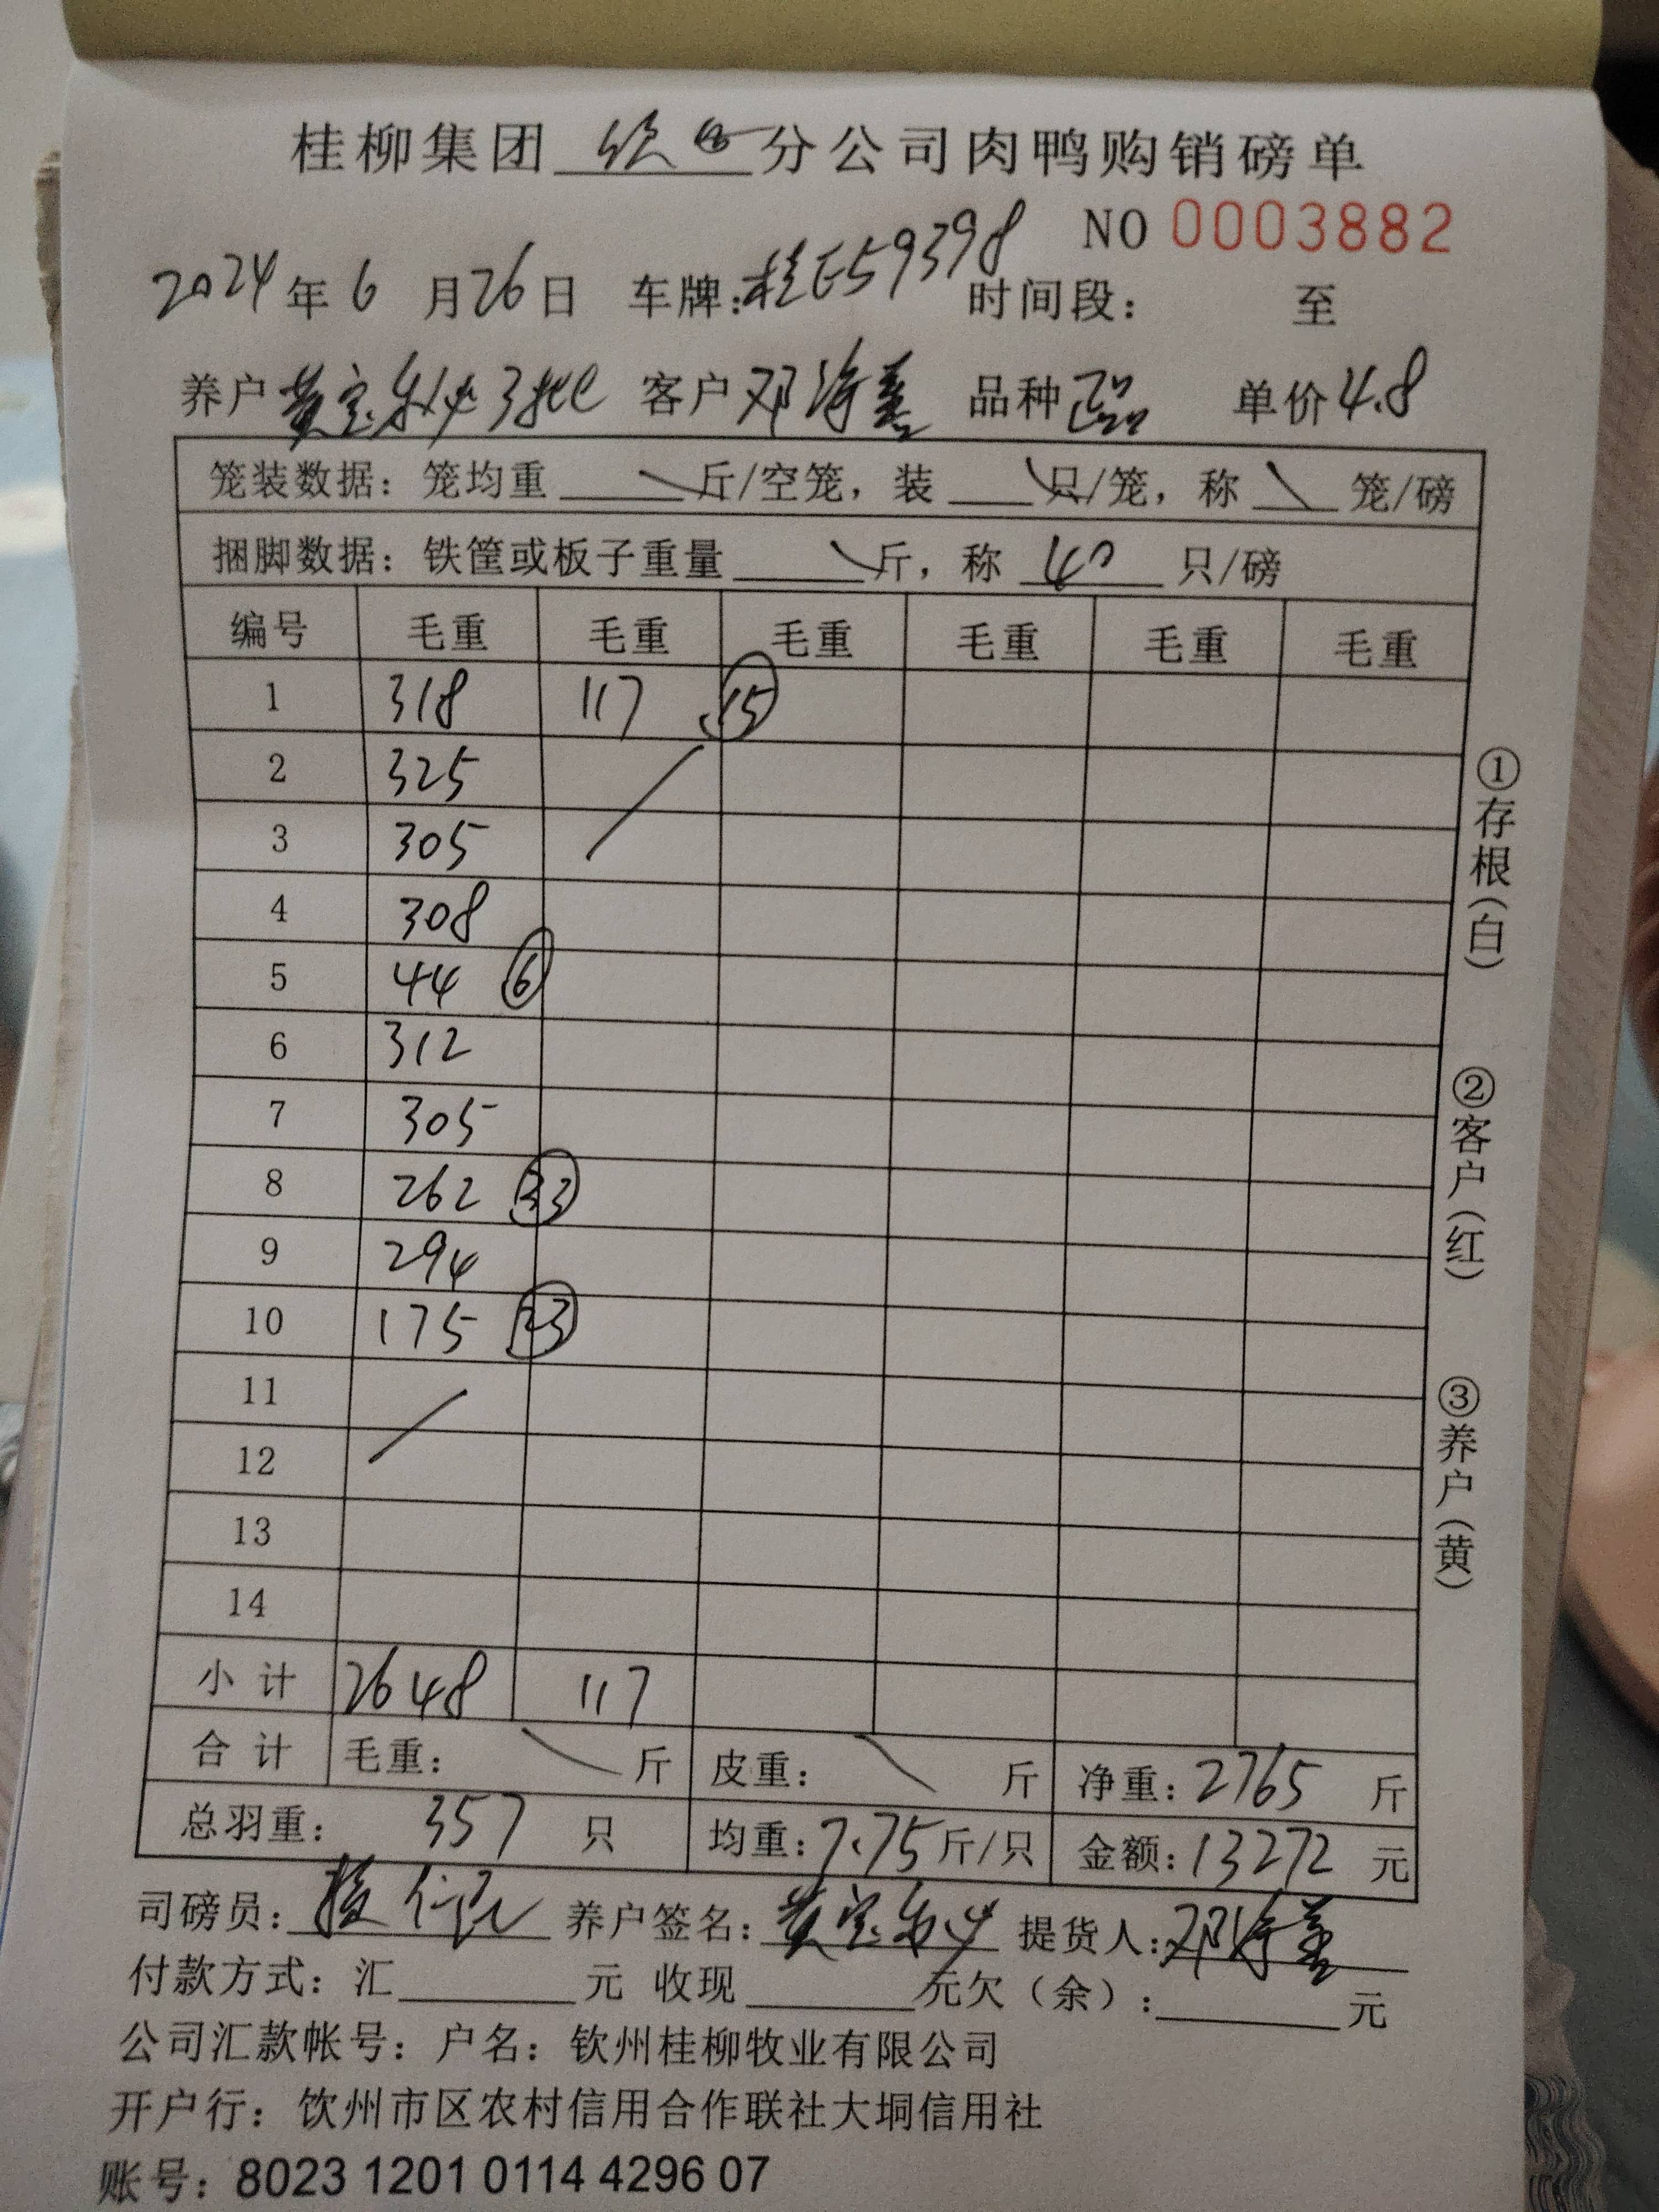 桂柳集团 分公司肉鸭购销磅单
NO 0003882
2024年6月26日 车牌:桂E59398 时间段: 至
养户 黄宝 3批 客户 邓海 品种 正品 单价4.8
笼装数据: 笼均重 \ 斤/空笼, 装 \ 只/笼, 称 \ 笼/磅
捆脚数据: 铁筐或板子重量 \ 斤, 称 40 只/磅
编号 毛重 毛重 毛重 毛重 毛重 毛重
1 318 117 15
2 325
3 305
4 308
5 44 6
6 312
7 305
8 262 33
9 294
10 175 23
11
12
13
14
小计 2648 117
合计 毛重: \ 斤 皮重: \ 斤 净重: 2765 斤
总羽重: 357 只 均重: 7.75 斤/只 金额: 13272 元
司磅员: 养户签名: 黄宝 提货人: 邓海
付款方式: 汇 元 收现 元欠(余): 元
公司汇款帐号: 户名: 钦州桂柳牧业有限公司
开户行: 饮州市区农村信用合作联社大垌信用社
账号: 8023 1201 0114 4296 07
①存根(白)
②客户(红)
③养户(黄)